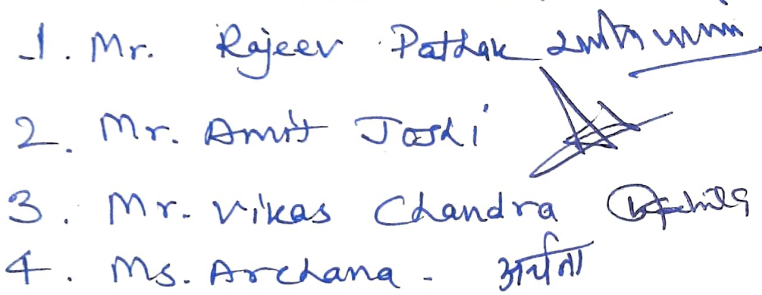 1. Mr. Rajeev Pathak
2. Mr. Amit Joshi
3. Mr. Vikas Chandra
4. Ms. Archana - अर्चना